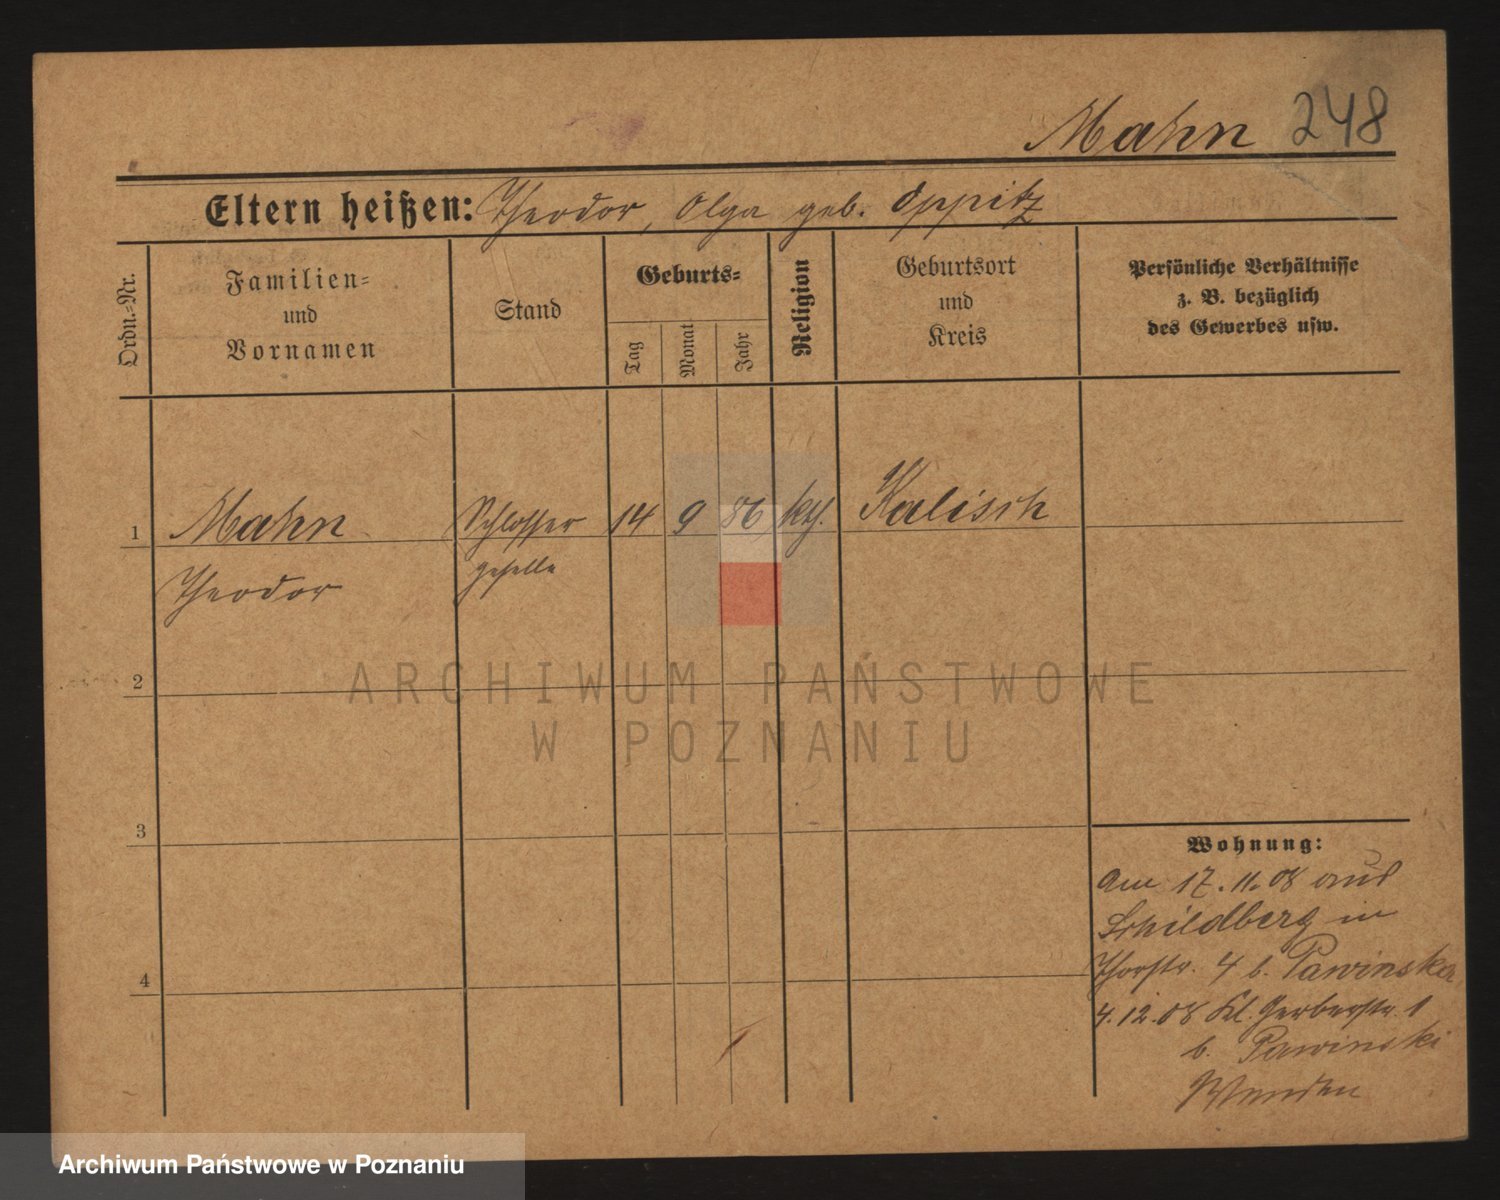 Mahn 248
Eltern heißen: Theodor, Olga geb. Oppitz
Ordn.-Nr.
Familien-
und
Vornamen
Stand
Geburts-
Tag
Monat
Jahr
Religion
Geburtsort
und
Kreis
Persönliche Verhältnisse
z. B. bezüglich
des Gewerbes usw.
1 Mahn Schlosser 14 9 86 kth. Kalisch
Theodor geselle
2
ARCHIWUM PAŃSTWOWE
W POZNANIU
3
Wohnung:
Am 17.11.08 aus
Schildberg in
Thorstr. 4 b. Pawinska
4
4.12.08 Kl. Gerberstr. 1
b. Pawinski
Archiwum Państwowe w Poznaniu